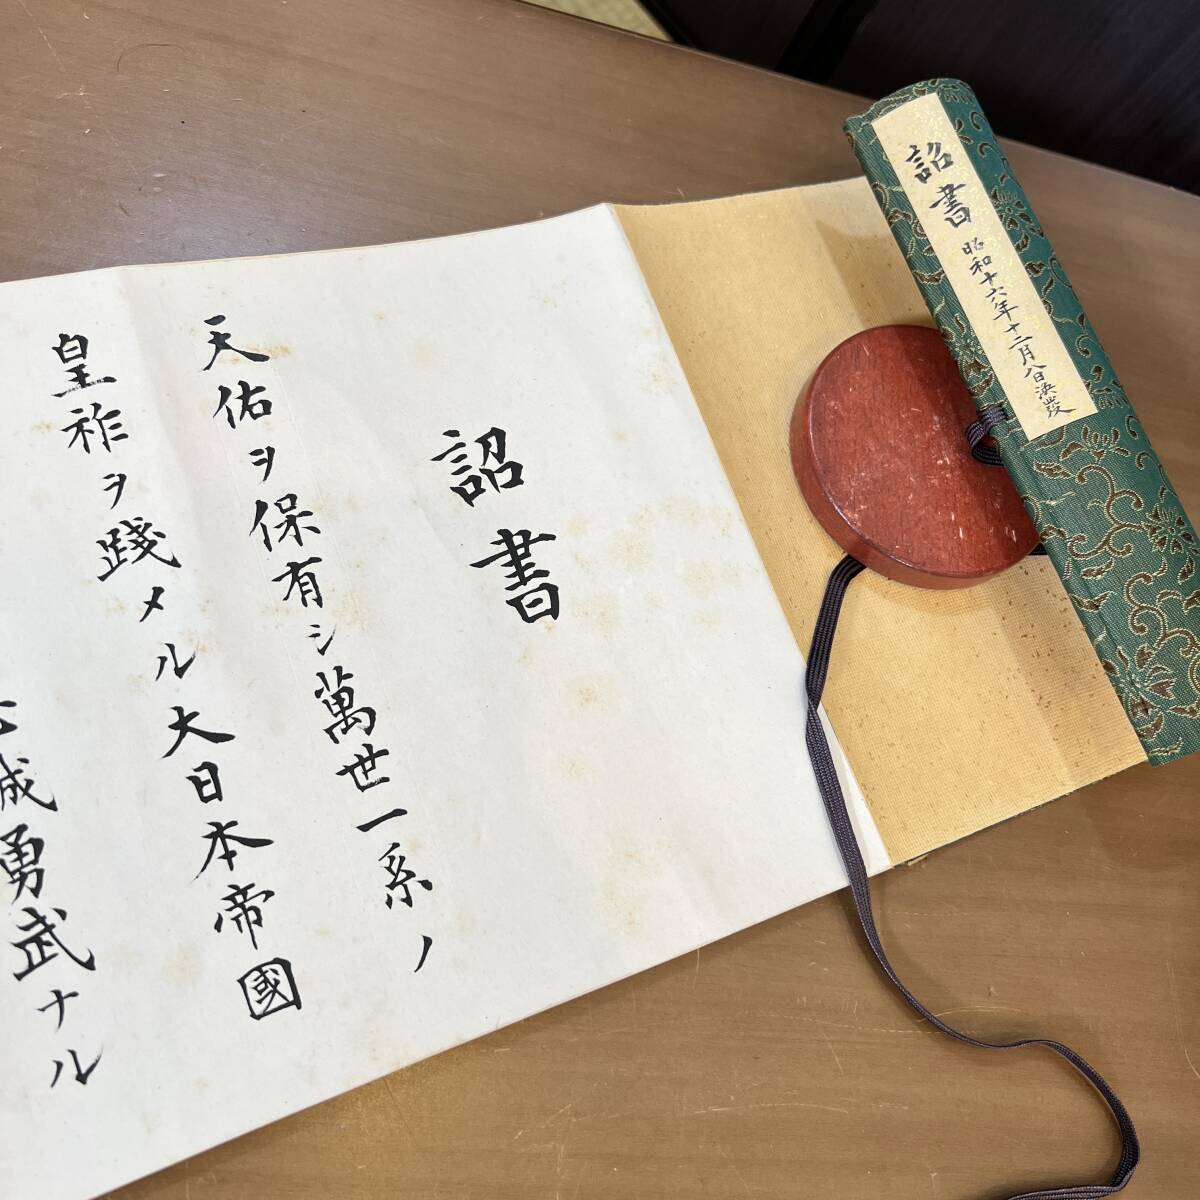 詔書
昭和十六年十二月八日渙發
詔書
天佑ヲ保有シ萬世一系ノ
皇祚ヲ踐メル大日本帝國
誠勇武ナル